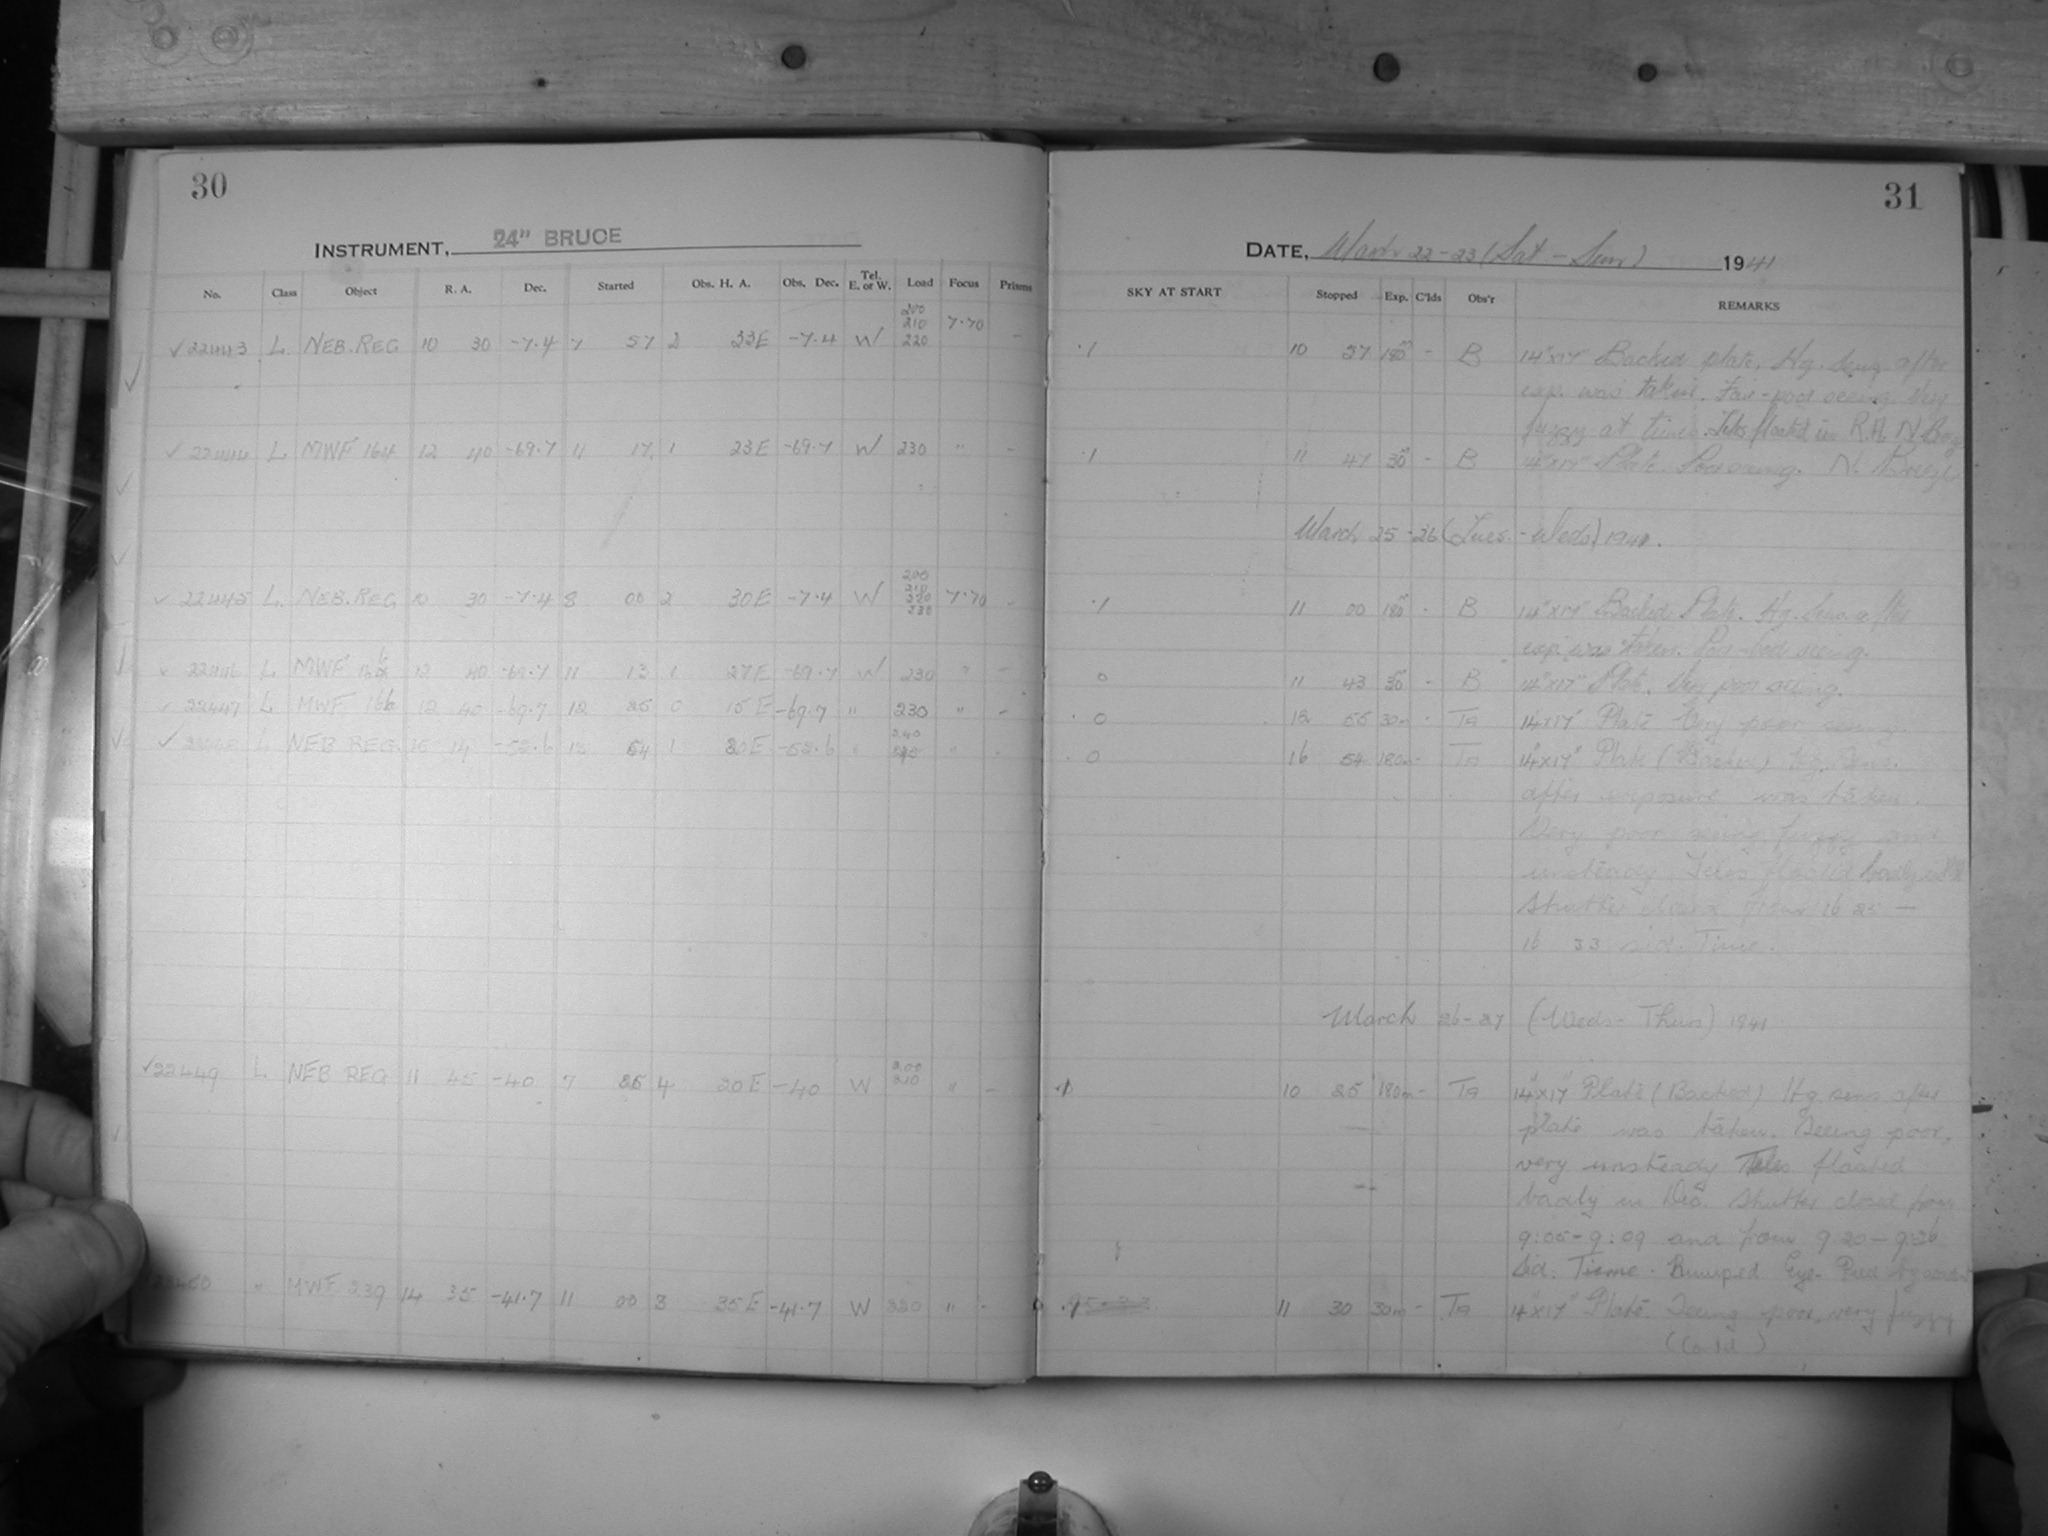 30
INSTRUMENT, 24" BRUCE
No. Class Object R. A. Dec. Started Obs. H. A. Obs. Dec. Tel. E. or W. Load Focus Prisms
200
210 7.70
✓22443 L. NEB. REG 10 30 -7.4 7 57 2 33E -7.4 W 220 -
✓ 22444 L MWF 164 12 40 -69.7 11 17 1 23E -69.7 W 230 " -
200
210
✓ 22445 L. NEB. REG 10 30 -7.4 8 00 2 30E -7.4 W 220 7.70 -
230
✓ 22446 L MWF 12 40 -69.7 11 13 1 27E -69.7 W 230 " -
✓ 22447 L MWF 166 12 40 -69.7 12 25 0 15E -69.7 " 230 " -
240
✓ L NEB REG. 15 14 -52.6 13 54 1 20E -52.6 " "
200
✓22449 L NEB REG 11 45 -40 7 25 4 20E -40 W 210 " -
22450 " MWF 239 14 35 -41.7 11 00 3 35E -41.7 W 220 " -
31
DATE, March 22-23 (Sat - Sun) 1941
SKY AT START Stopped Exp. C'lds Obs'r REMARKS
.1 10 57 180 - B 14"x17" Backed plate. Hg. Sens. after
exp. was taken. Fair-poor seeing. Very
fuzzy at times. Teles floated in R.A. N. Breeze
.1 11 47 30 - B 14"x17" Plate. Poor seeing. N. Breeze
March 25-26 (Tues. - Weds) 1941.
.1 11 00 180 - B 14"x17" Backed Plate. Hg. Sens. after
exp. was taken. Poor-bad seeing.
0 11 43 30 - B 14"x17" Plate. Very poor seeing.
0 12 55 30m - Ta 14"x17" Plate Very poor seeing.
0 16 54 180m - Ta 14"x17" Plate (Backed) Hg. Sens.
after exposure was taken.
Very poor seeing, fuzzy and
unsteady. Teles floated badly in
Shutter closed from 16 25 -
16 33 sid. Time.
March 26-27 (Weds - Thurs) 1941
10 25 180m - Ta 14"x17" Plate (Backed) Hg sens after
plate was taken. Seeing poor,
very unsteady Teles floated
badly in Dec. Shutter closed from
9:05-9:09 and from 9 20-9:26
Sid. Time. Bumped Eye-
11 30 30m - Ta 14"x17" Plate. Seeing poor, very fuzzy
(Cold)